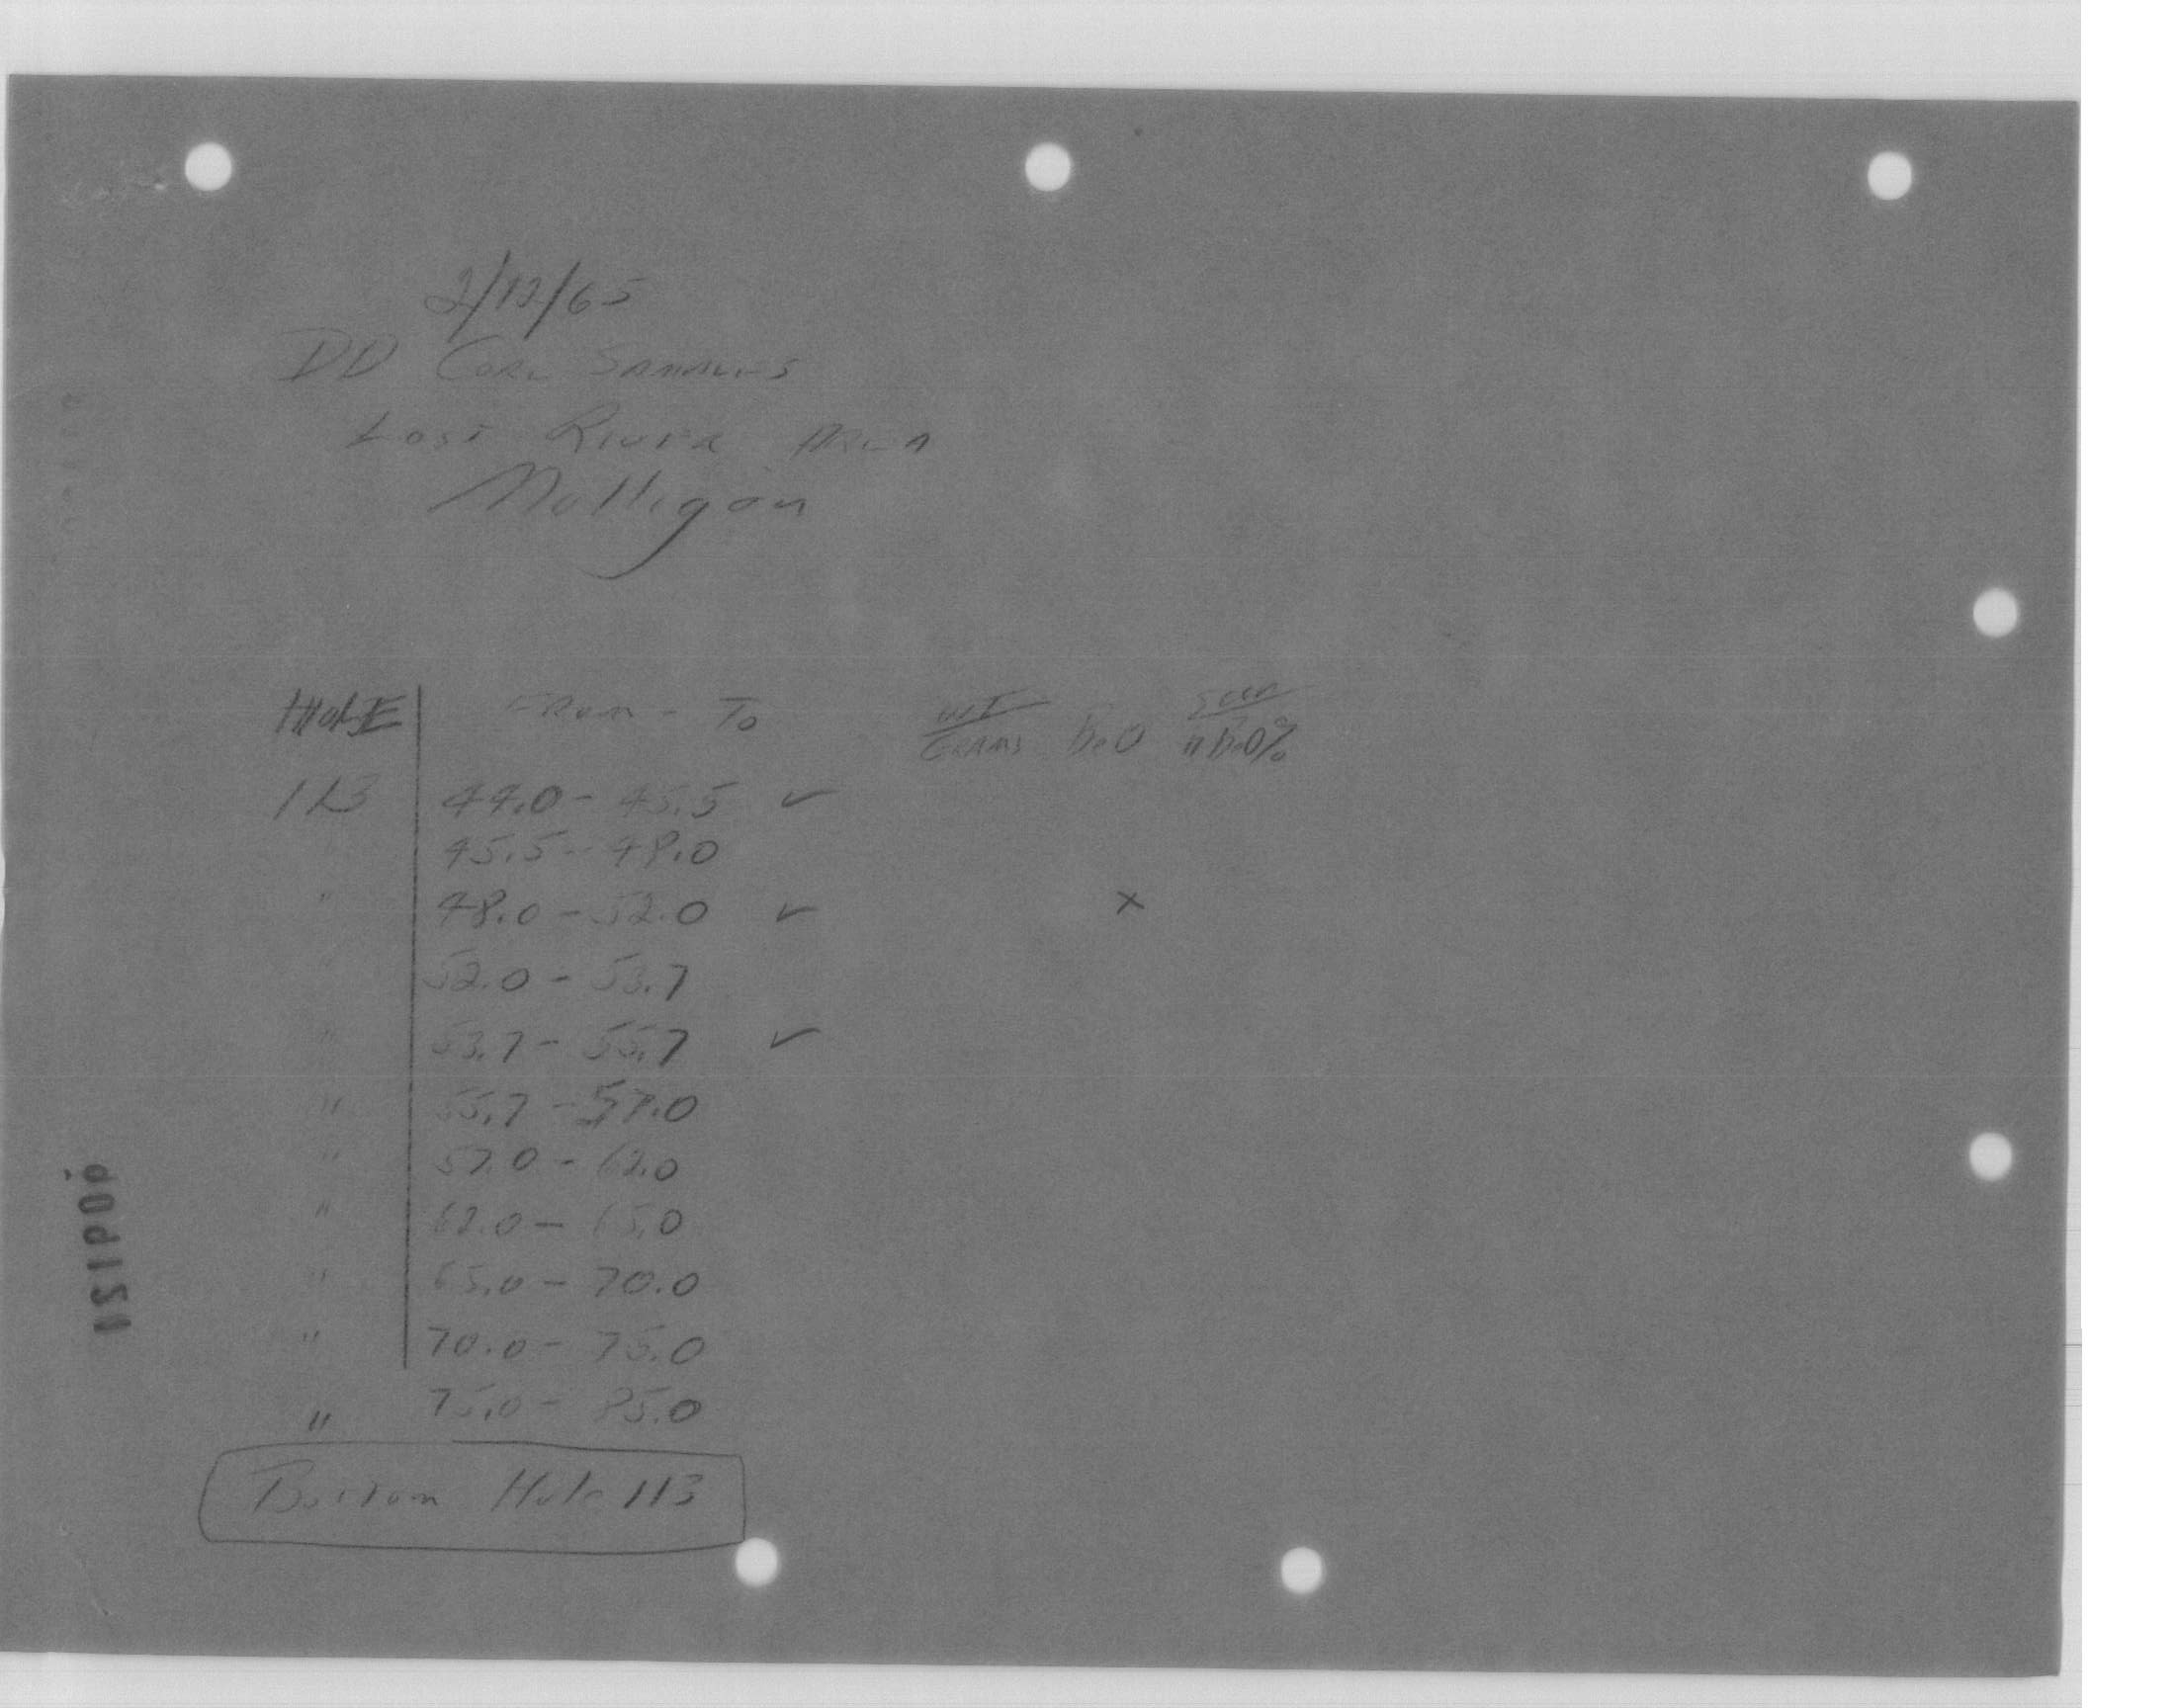 2/12/65
DD CORE SAMPLES
LOST RIVER AREA
Mulligan
HOLE FROM - TO WT GRAMS BeO BeO%
113 44.0 - 45.5 ✓
45.5 - 48.0
" 48.0 - 52.0 ✓ x
" 52.0 - 53.7
" 53.7 - 55.7 ✓
" 55.7 - 57.0
" 57.0 - 62.0
" 62.0 - 65.0
" 65.0 - 70.0
" 70.0 - 75.0
" 75.0 - 85.0
Bottom Hole 113